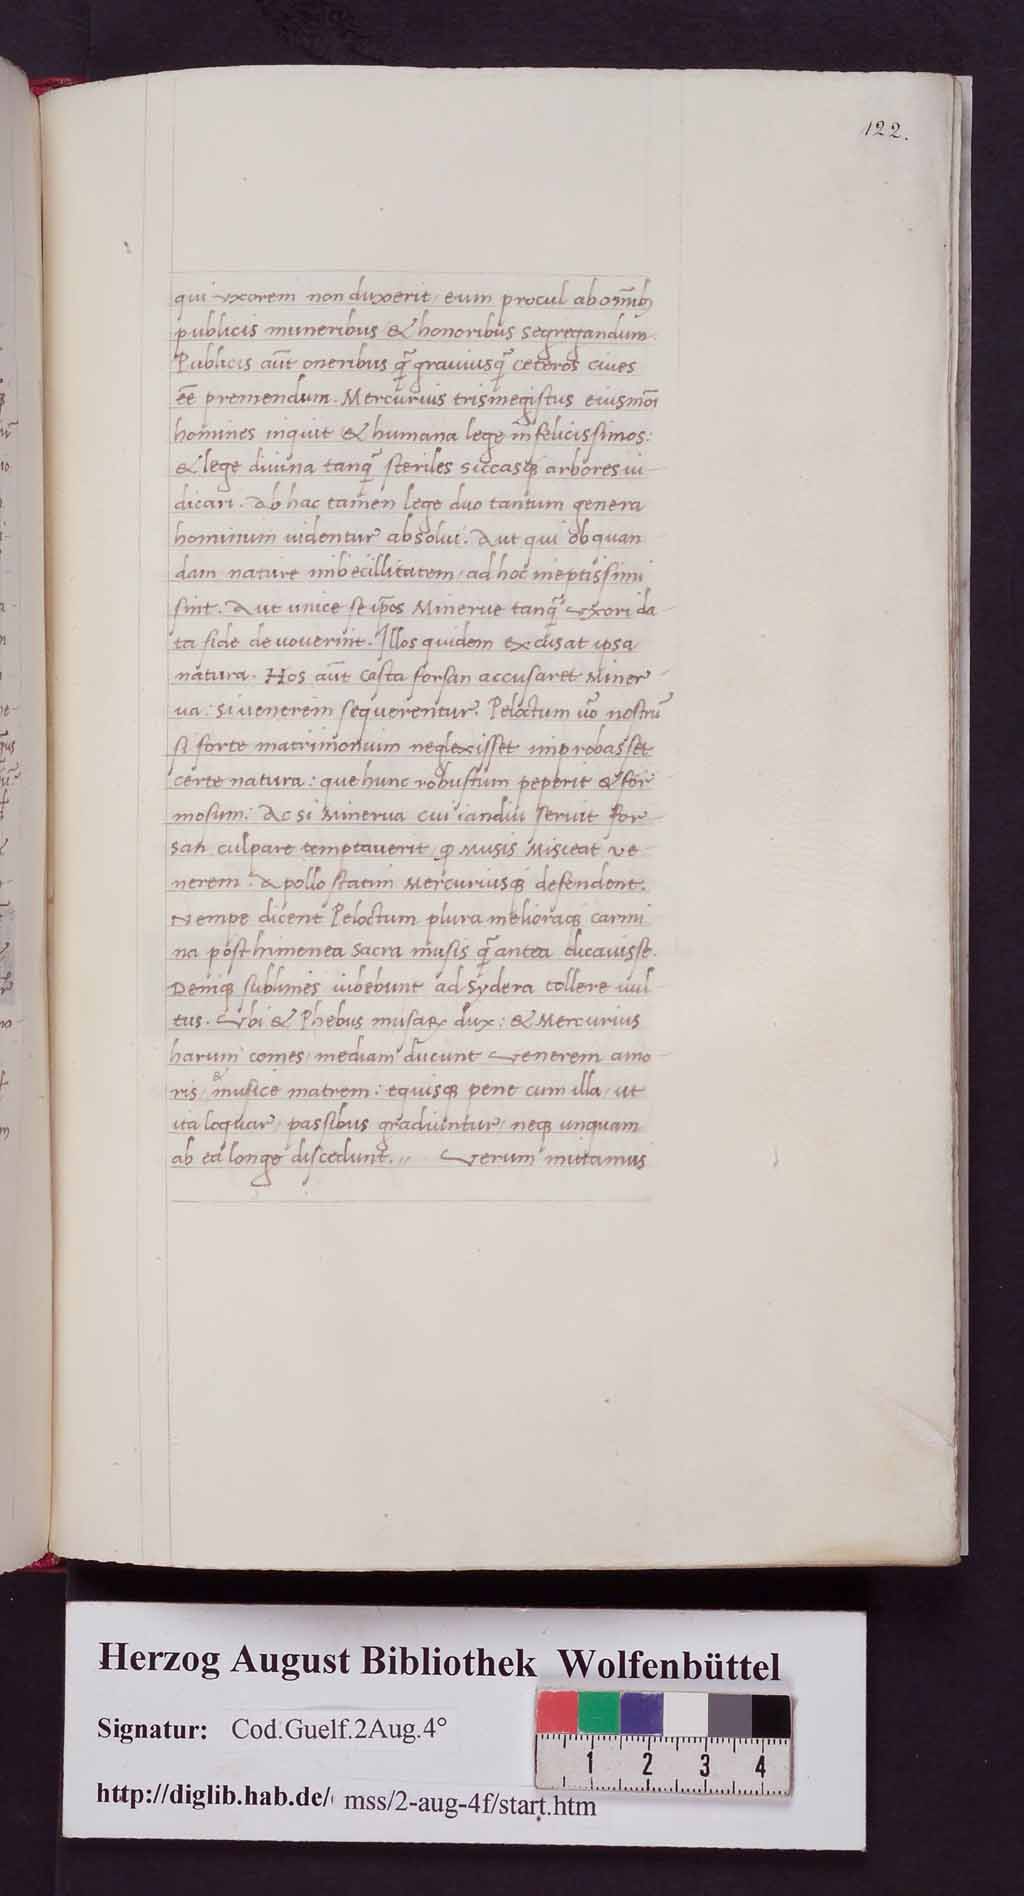 122.
qui uxorem non duxerit, eum procul ab om̄ib;
publicis muneribus & honoribus segregandum.
Publicis aūt oneribus q̄ grauiusq̄ ceteros ciues
eē premendum. Mercurius trismegistus eiusmōi
homines inquit & humana lege infelicissimos:
& lege diuina tanq̄ steriles siccasq; arbores iu-
dicari. Ab hac tamen lege duo tantum genera
hominum uidentur absolui. Aut qui ob quan
dam nature imbecillitatem, ad hoc ineptissimi
sint. Aut unice se ip̄os Minerue tanq̄ uxori da-
ta fide deuouerint. Illos quidem excusat ipsa
natura. Hos aūt casta forsan accusaret Miner-
ua: si uenerem sequerentur. Peloctum uō nostrū
si forte matrimonium neglexisset improbasset
certe natura: que hunc robustum peperit & for-
mosum. Ac si Minerua cui iandiu seruit for-
san culpare temptauerit, ꝙ Musis misceat ue-
nerem: Apollo statim Mercuriusq; defendent.
Nempe dicent Peloctum plura melioraq; carmi
na post himenea sacra musis q̄ antea dicauisse.
Deniq; sublimes iubebunt ad sydera tollere uul-
tus. Vbi & Phebus musaꝝ dux: & Mercurius
harum comes, mediam ducunt Venerem amo-
ris, & musice matrem: equisq; pene cum illa, ut
ita loquar, passibus gradiuntur, neq; unquam
ab ea longe discedunt. Verum mittamus
Herzog August Bibliothek Wolfenbüttel
Signatur: Cod.Guelf.2Aug.4°
1 2 3 4
http://diglib.hab.de/ mss/2-aug-4f/start.htm